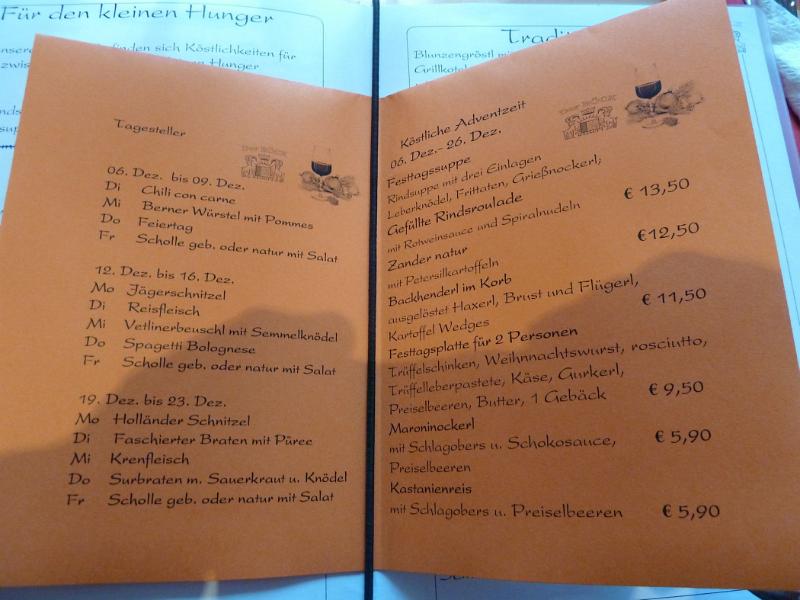 Für den kleinen Hunger
finden sich Köstlichkeiten für
Hunger
Blunzengröstl
Tagesteller
Der BÖCK
06. Dez. bis 09. Dez.
Di Chili con carne
Mi Berner Würstel mit Pommes
Do Feiertag
Fr Scholle geb. oder natur mit Salat
12. Dez. bis 16. Dez.
Mo Jägerschnitzel
Di Reisfleisch
Mi Vetlinerbeuschl mit Semmelknödel
Do Spagetti Bolognese
Fr Scholle geb. oder natur mit Salat
19. Dez. bis 23. Dez.
Mo Holländer Schnitzel
Di Faschierter Braten mit Püree
Mi Krenfleisch
Do Surbraten m. Sauerkraut u. Knödel
Fr Scholle geb. oder natur mit Salat
Köstliche Adventzeit
Der BÖCK
06. Dez.- 26. Dez.
Festtagssuppe
Rindsuppe mit drei Einlagen
Leberknödel, Frittaten, Grießnockerl;
Gefüllte Rindsroulade € 13,50
mit Rotweinsauce und Spiralnudeln
Zander natur €12,50
mit Petersilkartoffeln
Backhenderl im Korb
ausgelöstet Haxerl, Brust und Flügerl, € 11,50
Kartoffel Wedges
Festtagsplatte für 2 Personen
Trüffelschinken, Weihnnachtswurst, rosciutto,
Trüffelleberpastete, Käse, Gurkerl,
Preiselbeeren, Butter, 1 Gebäck € 9,50
Maroninockerl
mit Schlagobers u. Schokosauce, € 5,90
Preiselbeeren
Kastanienreis
mit Schlagobers u. Preiselbeeren € 5,90